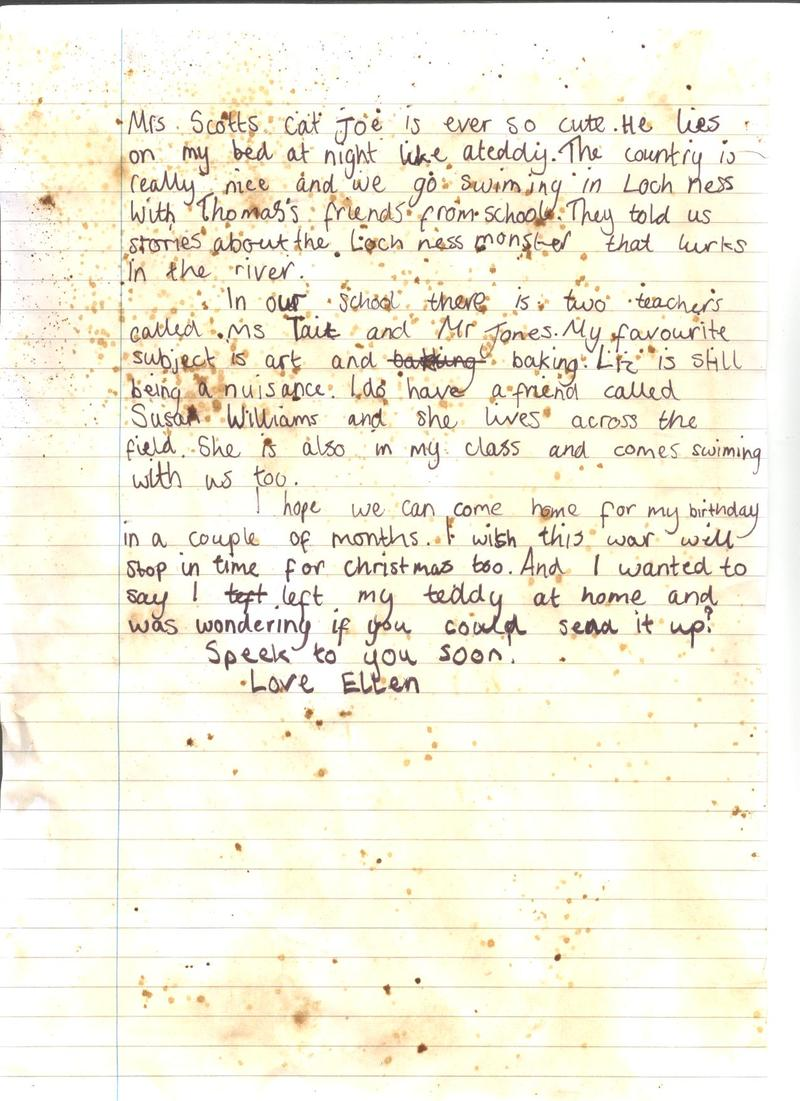 Mrs. Scotts cat Joe is ever so cute. He lies
on my bed at night like ateddy. The country is
really nice and we go swiming in Loch ness
With Thomas's friends from school. They told us
stories about the Loch ness monster that lurks
in the river.
In our school there is two teachers
called Ms Tait and Mr Jones. My favourite
subject is art and baking. Liz is still
being a nuisance. I do have a friend called
Susan Williams and she lives across the
field. She is also in my class and comes swiming
with us too.
I hope we can come home for my birthday
in a couple of months. I wish this war will
stop in time for christmas too. And I wanted to
say I left my teddy at home and
was wondering if you could send it up?
Speek to you soon!
Love Ellen